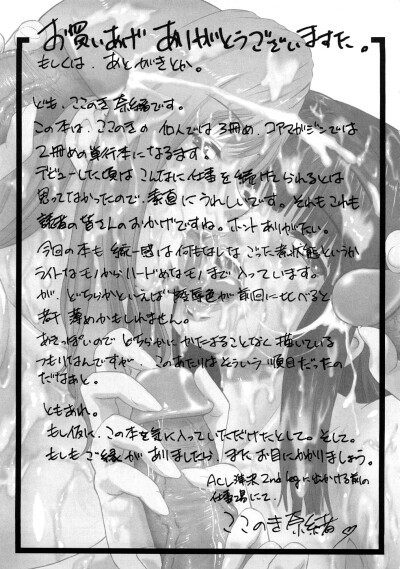 お買いあげ ありがとうございますた。
もしくは、あとがきとか。
ども、ここのき奈緒です。
この本は、ここのきの 個人では3冊め、コアマガジンでは
2冊めの単行本になるます。
デビューした頃は こんなに仕事を続けてられるとは
思ってなかったので、素直にうれしいです。それもこれも
読者の皆さんのおかげですね。ホントありがたい。
今回の本も 統一感は何もなしな ごった煮状態というか
ライトなモノからハードめなモノまで入っています。
が、どちらかといえば 陵辱色が前回に比べると
若干 薄めかもしれません。
あきっぽいので どちらかにかたよることなく描いている
つもりなんですが、このあたりはそういう順目だったの
だなあと。
ともあれ。
もし仮に、この本を気に入っていただけたとして。そして。
もしも ご縁がありましたら、またお目にかかりましょう。
ACL 2nd legに出かける前の
仕事場にて。
ここのき奈緒